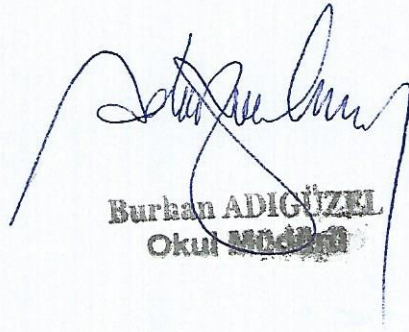 Burhan ADIGÜZEL
Okul Müdürü